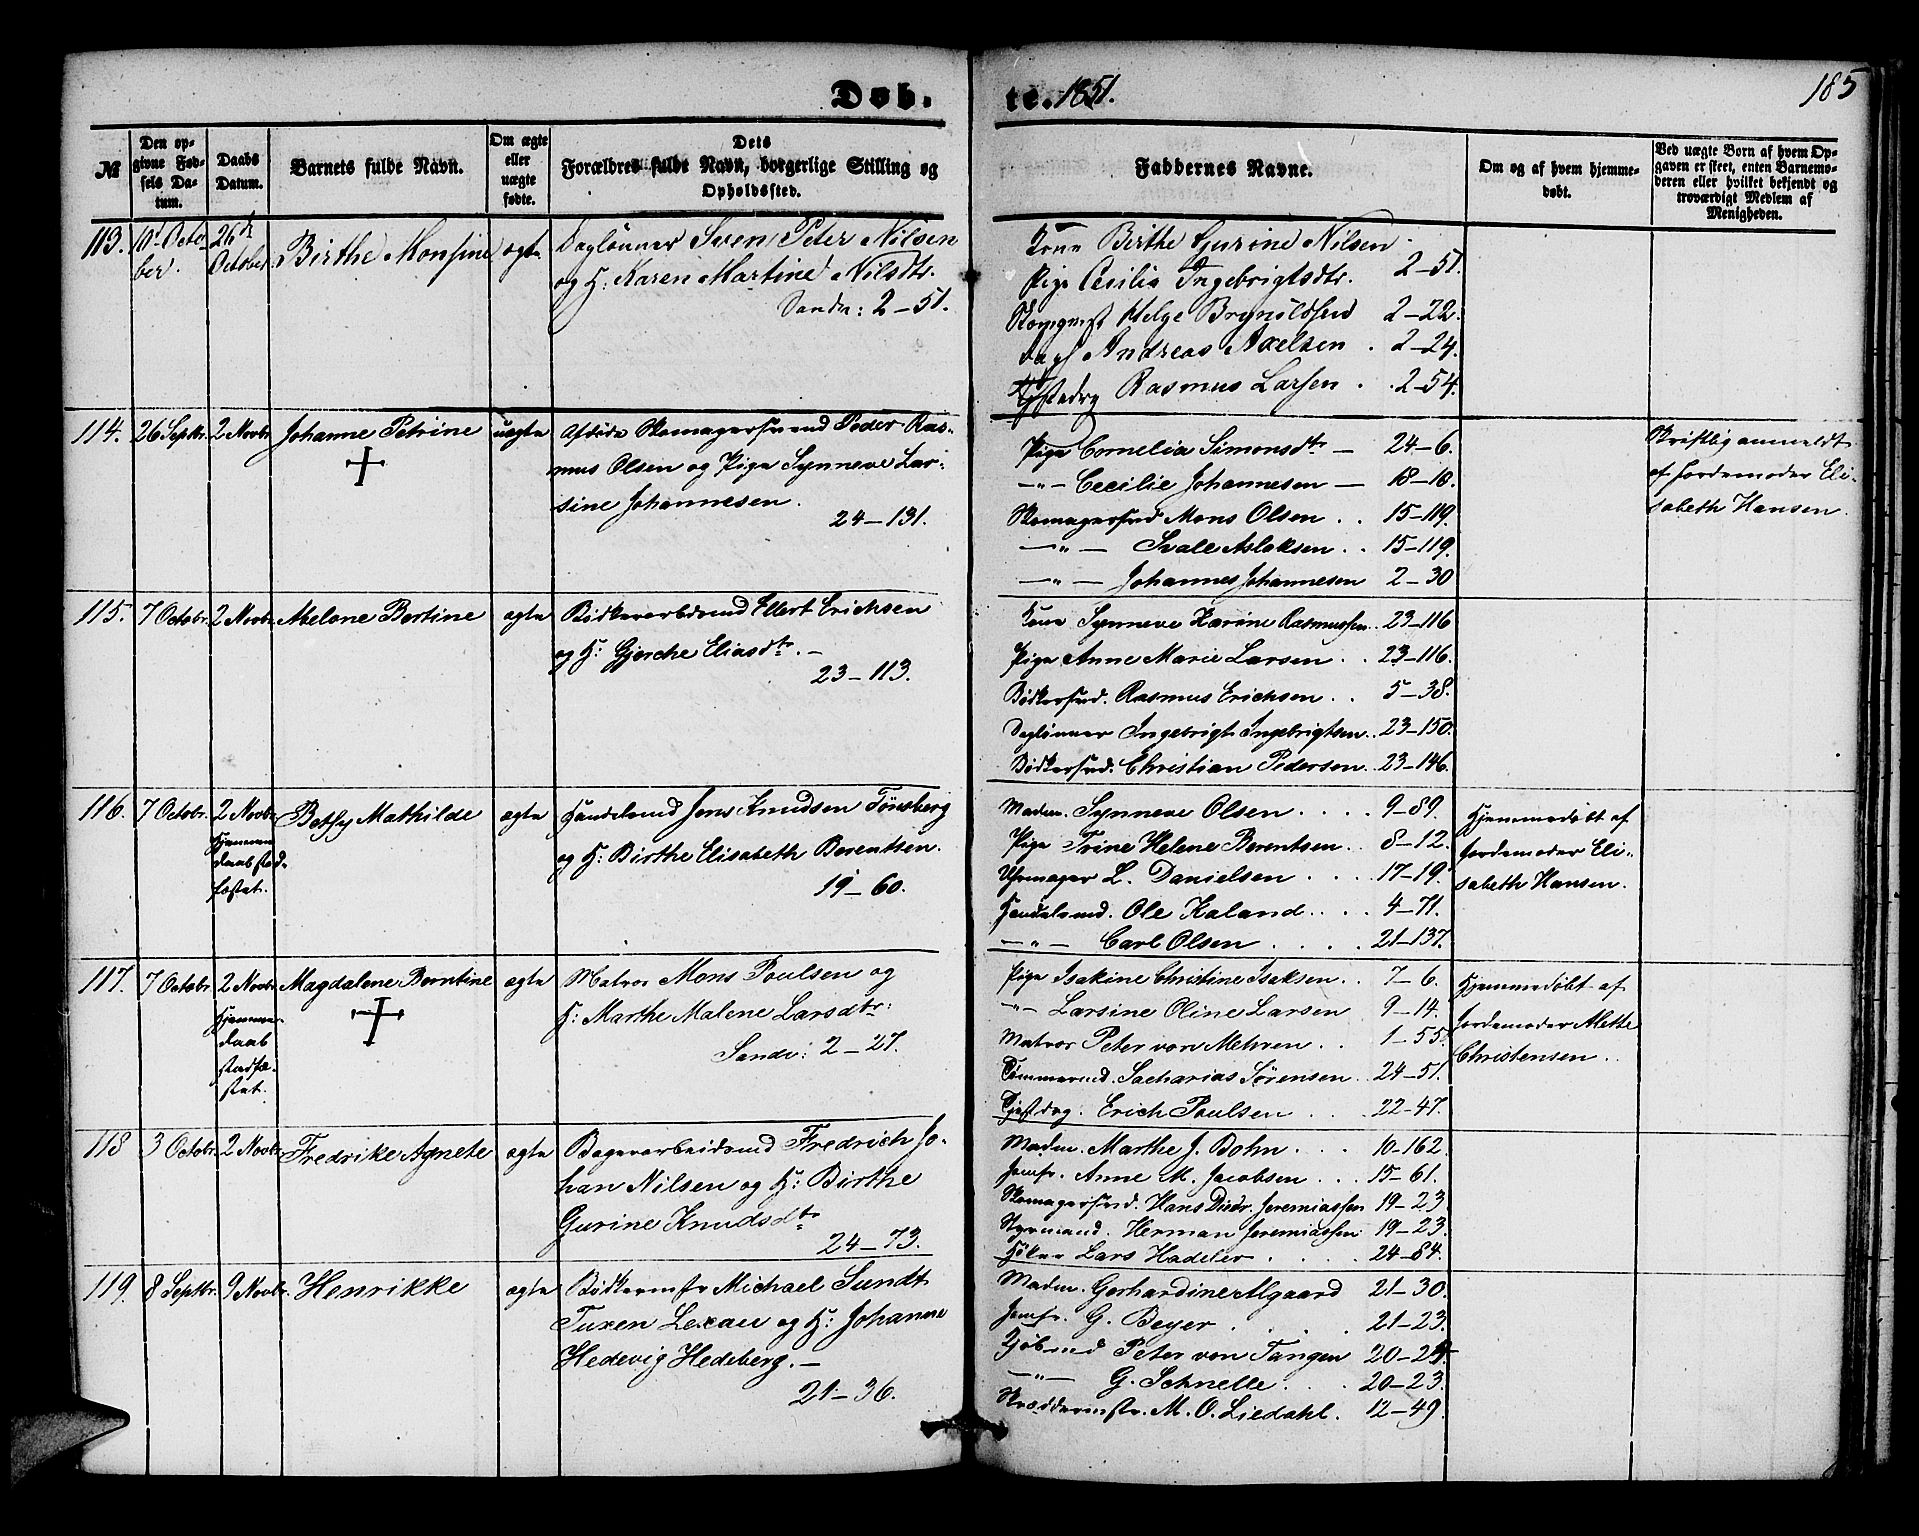 Døb.
te. 1851.
185
№
Den op-
givne Fød-
sels Da-
tum.
Daabs
Datum.
Barnets fulde Navn.
Om ægte
eller
uægte
fødte.
Dets
Forældres fulde Navn, borgerlige Stilling og
Opholdssted.
Faddernes Navne.
Om og af hvem hjemme-
døbt.
Ved uægte Børn af hvem Op-
gaven er skeet, enten Barnemo-
deren eller hvilket bekjendt og
troværdigt Medlem af
Menigheden.
113. 10d Octo-
ber.
26de
October
Birthe Monsine
ægte
Daglønner Sven Peter Nilsen
og H: Karen Martine Nilsdtr.
Sandv: 2-51.
Kone Birthe Gurine Nilsen
Pige Cecilia Ingebrigtsdtr. 2-51.
Helge Brynildsen 2-22.
Andreas Axelsen . 2-24.
Rasmus Larsen . . 2-54.
114. 26 Septbr. 2 Novbr. Johanne Petrine
uægte
Afdøde Skomagersvend Peder Ras-
mus Olsen og Pige Synneve Lar-
sine Johannesen.
24-131.
Pige Cornelia Simonsdtr — 24-6.
—„— Cecilie Johannesen — 18-18.
Skomagersvd Mons Olsen . . 15-119.
—„— Svale Aslaksen . . 15-119.
—„— Johannes Johannesen 2-30
Skriftlig anmeldt
af Jordemoder Eli-
sabeth Hansen.
115. 7 Octobr. 2 Novbr. Abelone Bertine
ægte
Bødkerarbdsmd Ellert Erichsen
og H: Gjerche Eliasdtr. —
23-113.
Kone Synneve Karine Rasmussen.. 23-116
Pige Anne Marie Larsen . . 23-116.
Bødkersvd. Rasmus Erichsen . . 5-38.
Daglønner Ingebrigt Ingebrigtsen.. 23-150.
Bødkersvd. Christian Pedersen.. 23-146.
116. 7 Octobr. 2 Novbr.
Hjemme
daab stad-
fæstet.
Betsy Mathilde
ægte
Handelsmd Jens Knudsen Tønsberg
og H: Birthe Elisabeth Berentsen.
19-60.
Madm. Synneve Olsen . . . . 9-89.
Pige Trine Helene Berentsen.. 8-12.
Uhrmager L. Danielsen . . . . 17-19.
Handelsmd. Ole Kaland . . . . 4-71.
—„— Carl Olsen . . . . 21-137.
Hjemmedøbt af
Jordemoder Eli-
sabeth Hansen.
117. 7 Octobr. 2 Novbr.
Hjemme-
daab
stadfæ-
stet.
Magdalene Berntine
ægte
Matros Mons Poulsen og
H: Marthe Malene Larsdtr:
Sandv: 2-27.
Pige Isakine Christine Isaksen.. 7-6.
—„— Larsine Oline Larsen 9-14.
Matros Peter von Mehren . . 1-55.
Tømmermd. Sacharias Sørensen.. 24-51.
Erich Poulsen . . . . 22-47.
Hjemmedøbt af
Jordemoder Alette
Christensen . .
118 3 Octobr. 2 Novbr. Fredrike Agnete
ægte
Bagerarbeidsmd Fredrich Jo-
han Nilsen og H: Birthe
Gurine Knudsdtr
24-73.
Madm. Marthe J. Bohn . . . 10-162.
Jomfr. Anne M. Jacobsen . . . 15-61.
Skomagersvd. Hans Didr. Jeremiassen 19-23
Styrmand. Herman Jeremiassen 19-23.
Høker Lars Hadeler . . . . 24-84.
119. 8 Septbr. 9 Novbr. Henrikke
ægte
Bødkermstr Michael Sundt
Tuxen Lexau og H: Johanne
Hedevig Hedeberg. —
21-36.
Madm. Gerhardine Algaard 21-30.
Jomfr. G. Beyer . . . . 21-23.
Kjøbmd Peter von Tangen 20-24
—„— G. Schnelle . . . . 20-23.
Skræddermstr. M. O. Liedahl. . 12-49.